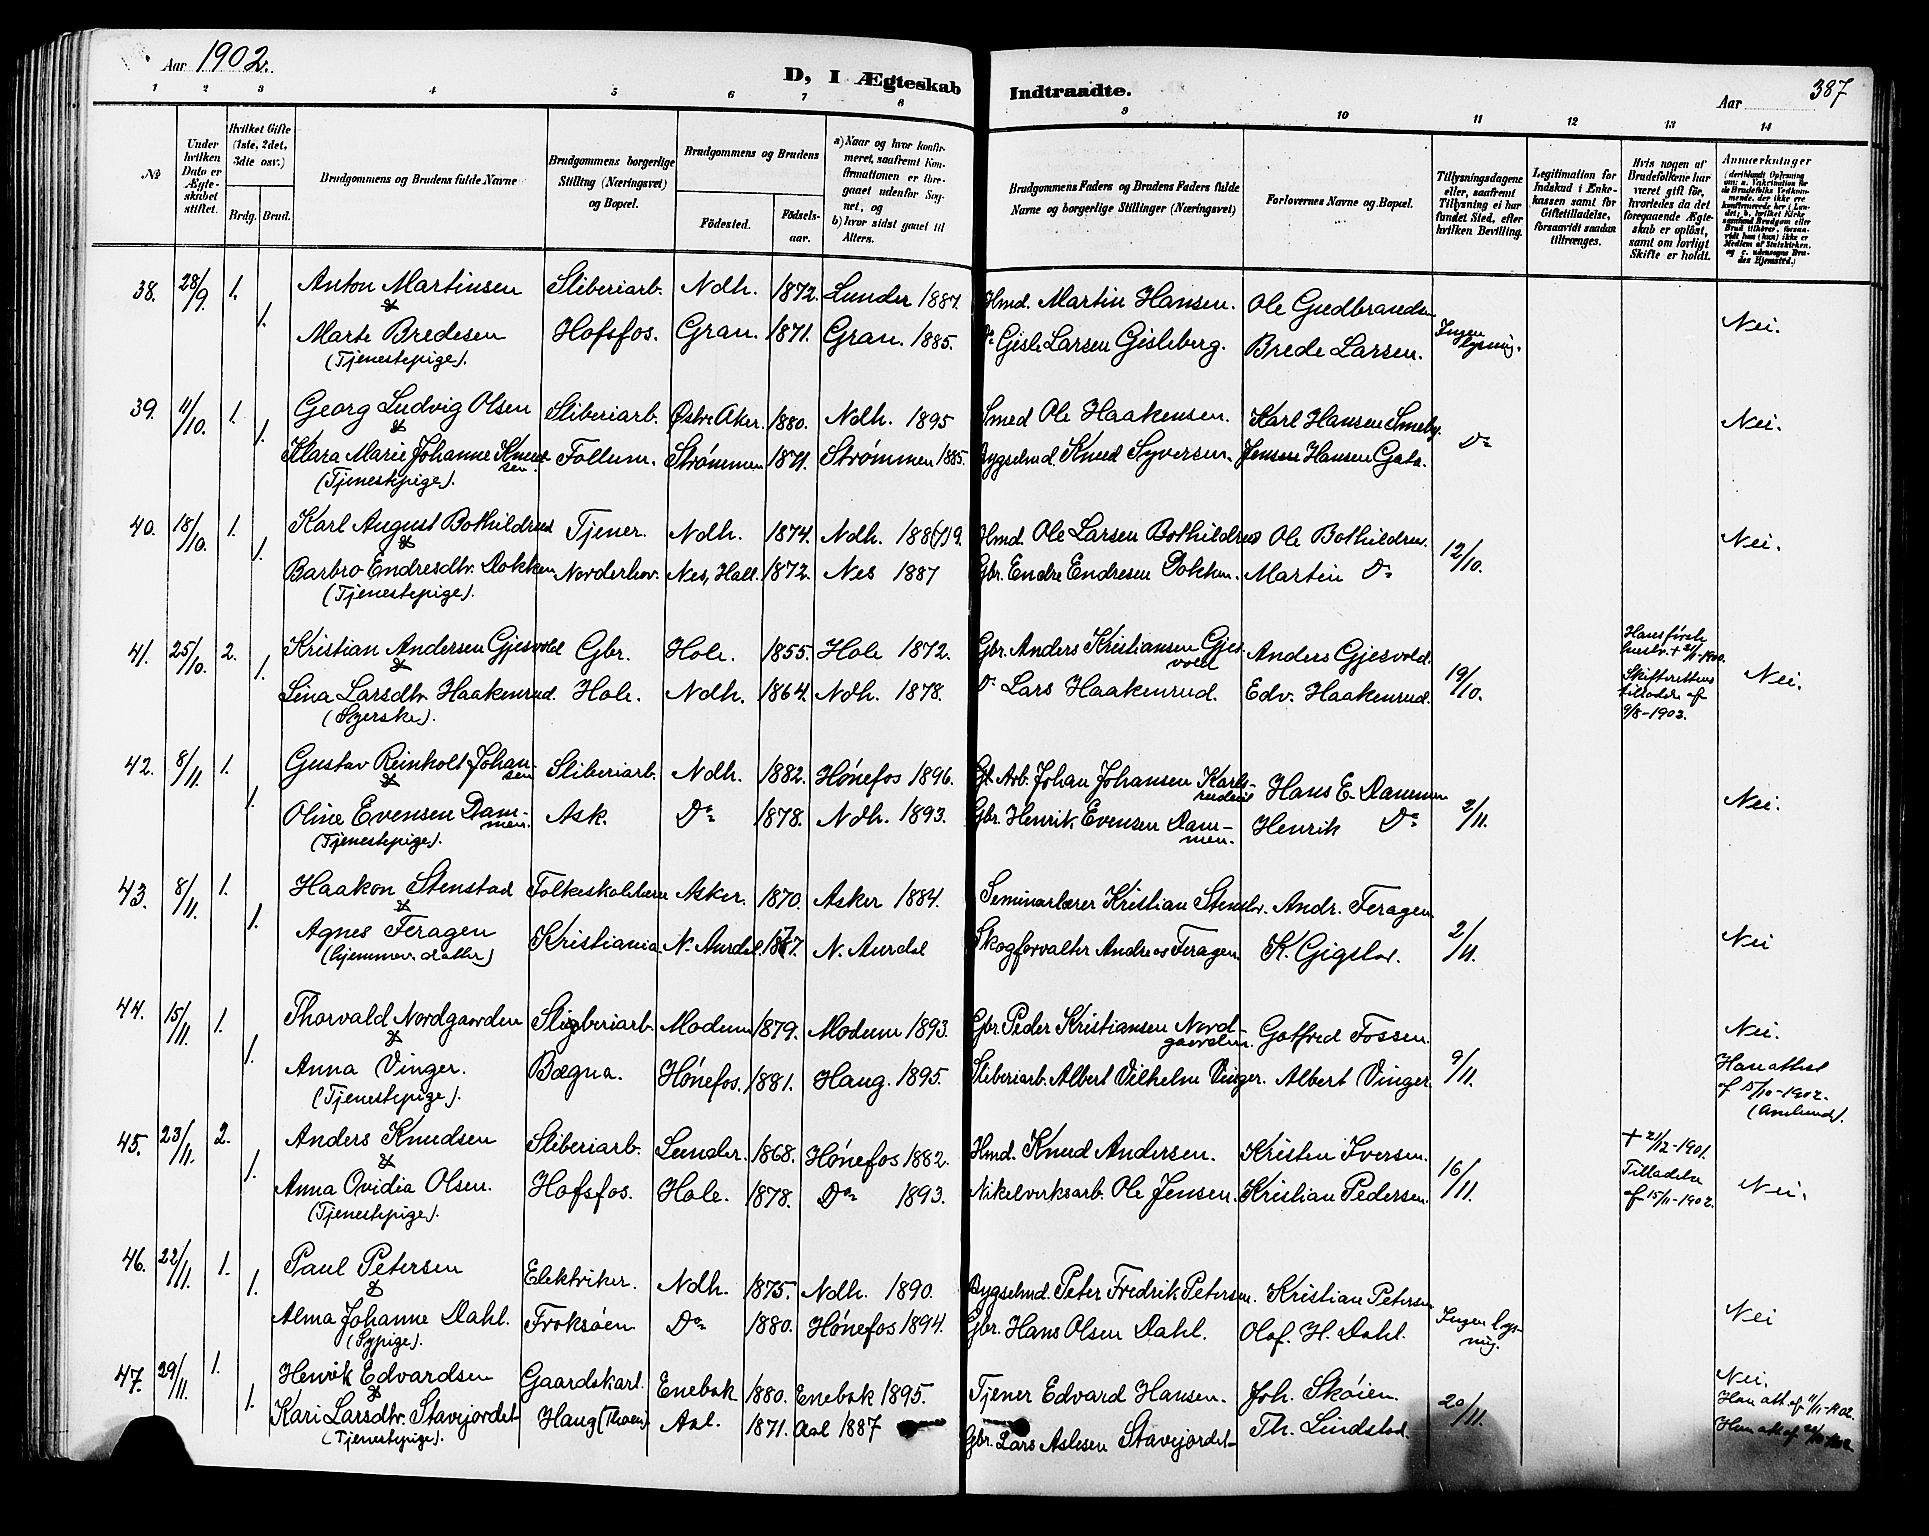 Aar 1902.
D, I Ægteskab Indtraadte.
Aar 387
1 2 3 4 5 6 7 8 9 10 11 12 13 14
No
Under hvilken Dato er Ægteskabet stiftet.
Hvilket Gifte (1ste, 2det, 3die osv.)
Brdg. Brud.
Brudgommens og Brudens fulde Navne
Brudgommens borgerlige Stilling (Næringsvei) og Bopæl.
Brudgommens og Brudens
Födested. Födsels-aar.
a) Naar og hvor konfirmeret, saafremt Konfirmationen er foregaaet udenfor Sognet, og
b) hvor sidst gaaet til Alters.
Brudgommens Faders og Brudens Faders fulde Navne og borgerlige Stillinger (Næringsvei)
Forlovernes Navne og Bopæl.
Tillysningsdagene eller, saafremt Tillysning ei har fundet Sted, efter hvilken Bevilling.
Legitimation for Indskud i Enkekassen samt for Giftetilladelse, forsaavidt saadan tiltrænges.
Hvis nogen af Brudefolkene har været gift för, hvorledes da det foregaaende Ægteskab er oplöst, samt om lovligt Skifte er holdt.
Anmærkninger
38. 28/9. 1. Anton Martinsen Sliberiarb. Ndh. 1872. Lunder 1887. Hmd. Martin Hansen. Ole Gudbrandsen
&
1. Marte Bredesen Hofsfos. Gran. 1871. Gran. 1885. Do Gisle Larsen Gisleberg. Brede Larsen. Ingen lysning. Nei.
(Tjenestepige).
39. 11/10. 1. Georg Ludvig Olsen Sliberiarb. Østre Aker. 1880. Ndh. 1895 Smed Ole Haakensen. Karl Hansen Smeby. Nei.
&
1. Klara Marie Johanne Knudsen. Follum. Strømmen 1871. Strømmen 1885. Bygselmd. Knud Syversen. Jensen Hansen Gata. Do
(Tjenestepige).
40. 18/10. 1. Karl August Bothildrud Tjener. Ndh. 1874. Ndh. 188(7)9. Hmd. Ole Larsen Bothildrud Ole Bothildrud. Nei.
&
1. Barbro Endresdtr. Dokken Norderhov. Nes, Hall. 1872. Nes 1887 Gbr. Endre Endresen Dokken. Martin Do 12/10.
(Tjenestepige).
41. 25/10. 2. Kristian Andersen Gjesvold Gbr. Hole. 1855. Hole 1872. Gbr. Anders Kristiansen Gjesvold Anders Gjesvold. Hans første hustr. + 2/11-1900.
&
1. Lina Larsdtr. Haakenrud. Hole. Ndh. 1864. Ndh. 1878. Do Lars Haakenrud. Edv. Haakenrud. 19/10. Skifterettens tillatelse af 9/8-1902. Nei.
(Syerske).
42. 8/11. 1. Gustav Reinholt Johansen Sliberiarb. Ndh. 1882. Hønefos 1896. Gl. Arb. Johan Johansen Karlsrudeie Hans E. Dammen
&
1. Oline Evensen Dammen. Ask. Do 1878. Ndh. 1893. Gbr. Henrik Evensen Dammen. Henrik Do 2/11. Nei.
(Tjenestepige).
43. 8/11. 1. Haakon Stenstad Folkeskolelærer Asker. 1870. Asker 1884. Seminarlærer Kristian Stenstad. Andr. Feragen
&
1. Agnes Feragen Kristiania N. Aurdal. 1877. N. Aurdal Skogforvalter Andreas Feragen. 2/11. Nei
(hjemmev. datter)
44. 15/11. 1. Thorvald Nordgaarden Sliberiarb. Modum 1879. Modum 1893. Gbr. Peder Kristiansen Nordgaarden. Gotfred Fossen. Nei.
&
1. Anna Vinger. Bægna. Hønefos. 1881. Haug. 1895. Sliberiarb. Albert Vilhelm Vinger. Albert Vinger. 9/11. Han attest af 15/10-1902.
(Tjenestepige).
45. 23/11. 2. Anders Knudsen Sliberiarb. Lunder. 1868. Hønefos 1882. Hmd. Knud Andersen. Kristen Iversen. + 2/12-1901.
&
1. Anna Ovidia Olsen. Hofsfos. Hole. 1878. Do 1893. Nikelverksarb. Ole Jensen. Kristian Pedersen. 16/11. Tilladelse af 15/11-1902. Nei.
(Tjenestepige).
46. 22/11. 1. Paul Petersen Elektriker. Ndh. 1875. Ndh. 1890. Bygselmd. Peter Fredrik Petersen. Kristian Petersen
&
1. Alma Johanne Dahl. Froksøen Do 1880. Hønefos 1894. Gbr. Hans Olsen Dahl. Olaf. H. Dahl. Ingen lysning. Nei
(Sypige).
47. 29/11. 1. Henrik Edvardsen Gaardskarl. Enebak 1880. Enebak 1895. Tjener Edvard Hansen. Joh. Skøien. Nei.
&
1. Kari Larsdtr. Stavejordet Haug (Thoen). Aal. 1871. Aal 1887 Gbr. Lars Aslesen Stavejordet Th. Lindstad. 20/11.
(Tjenestepige).